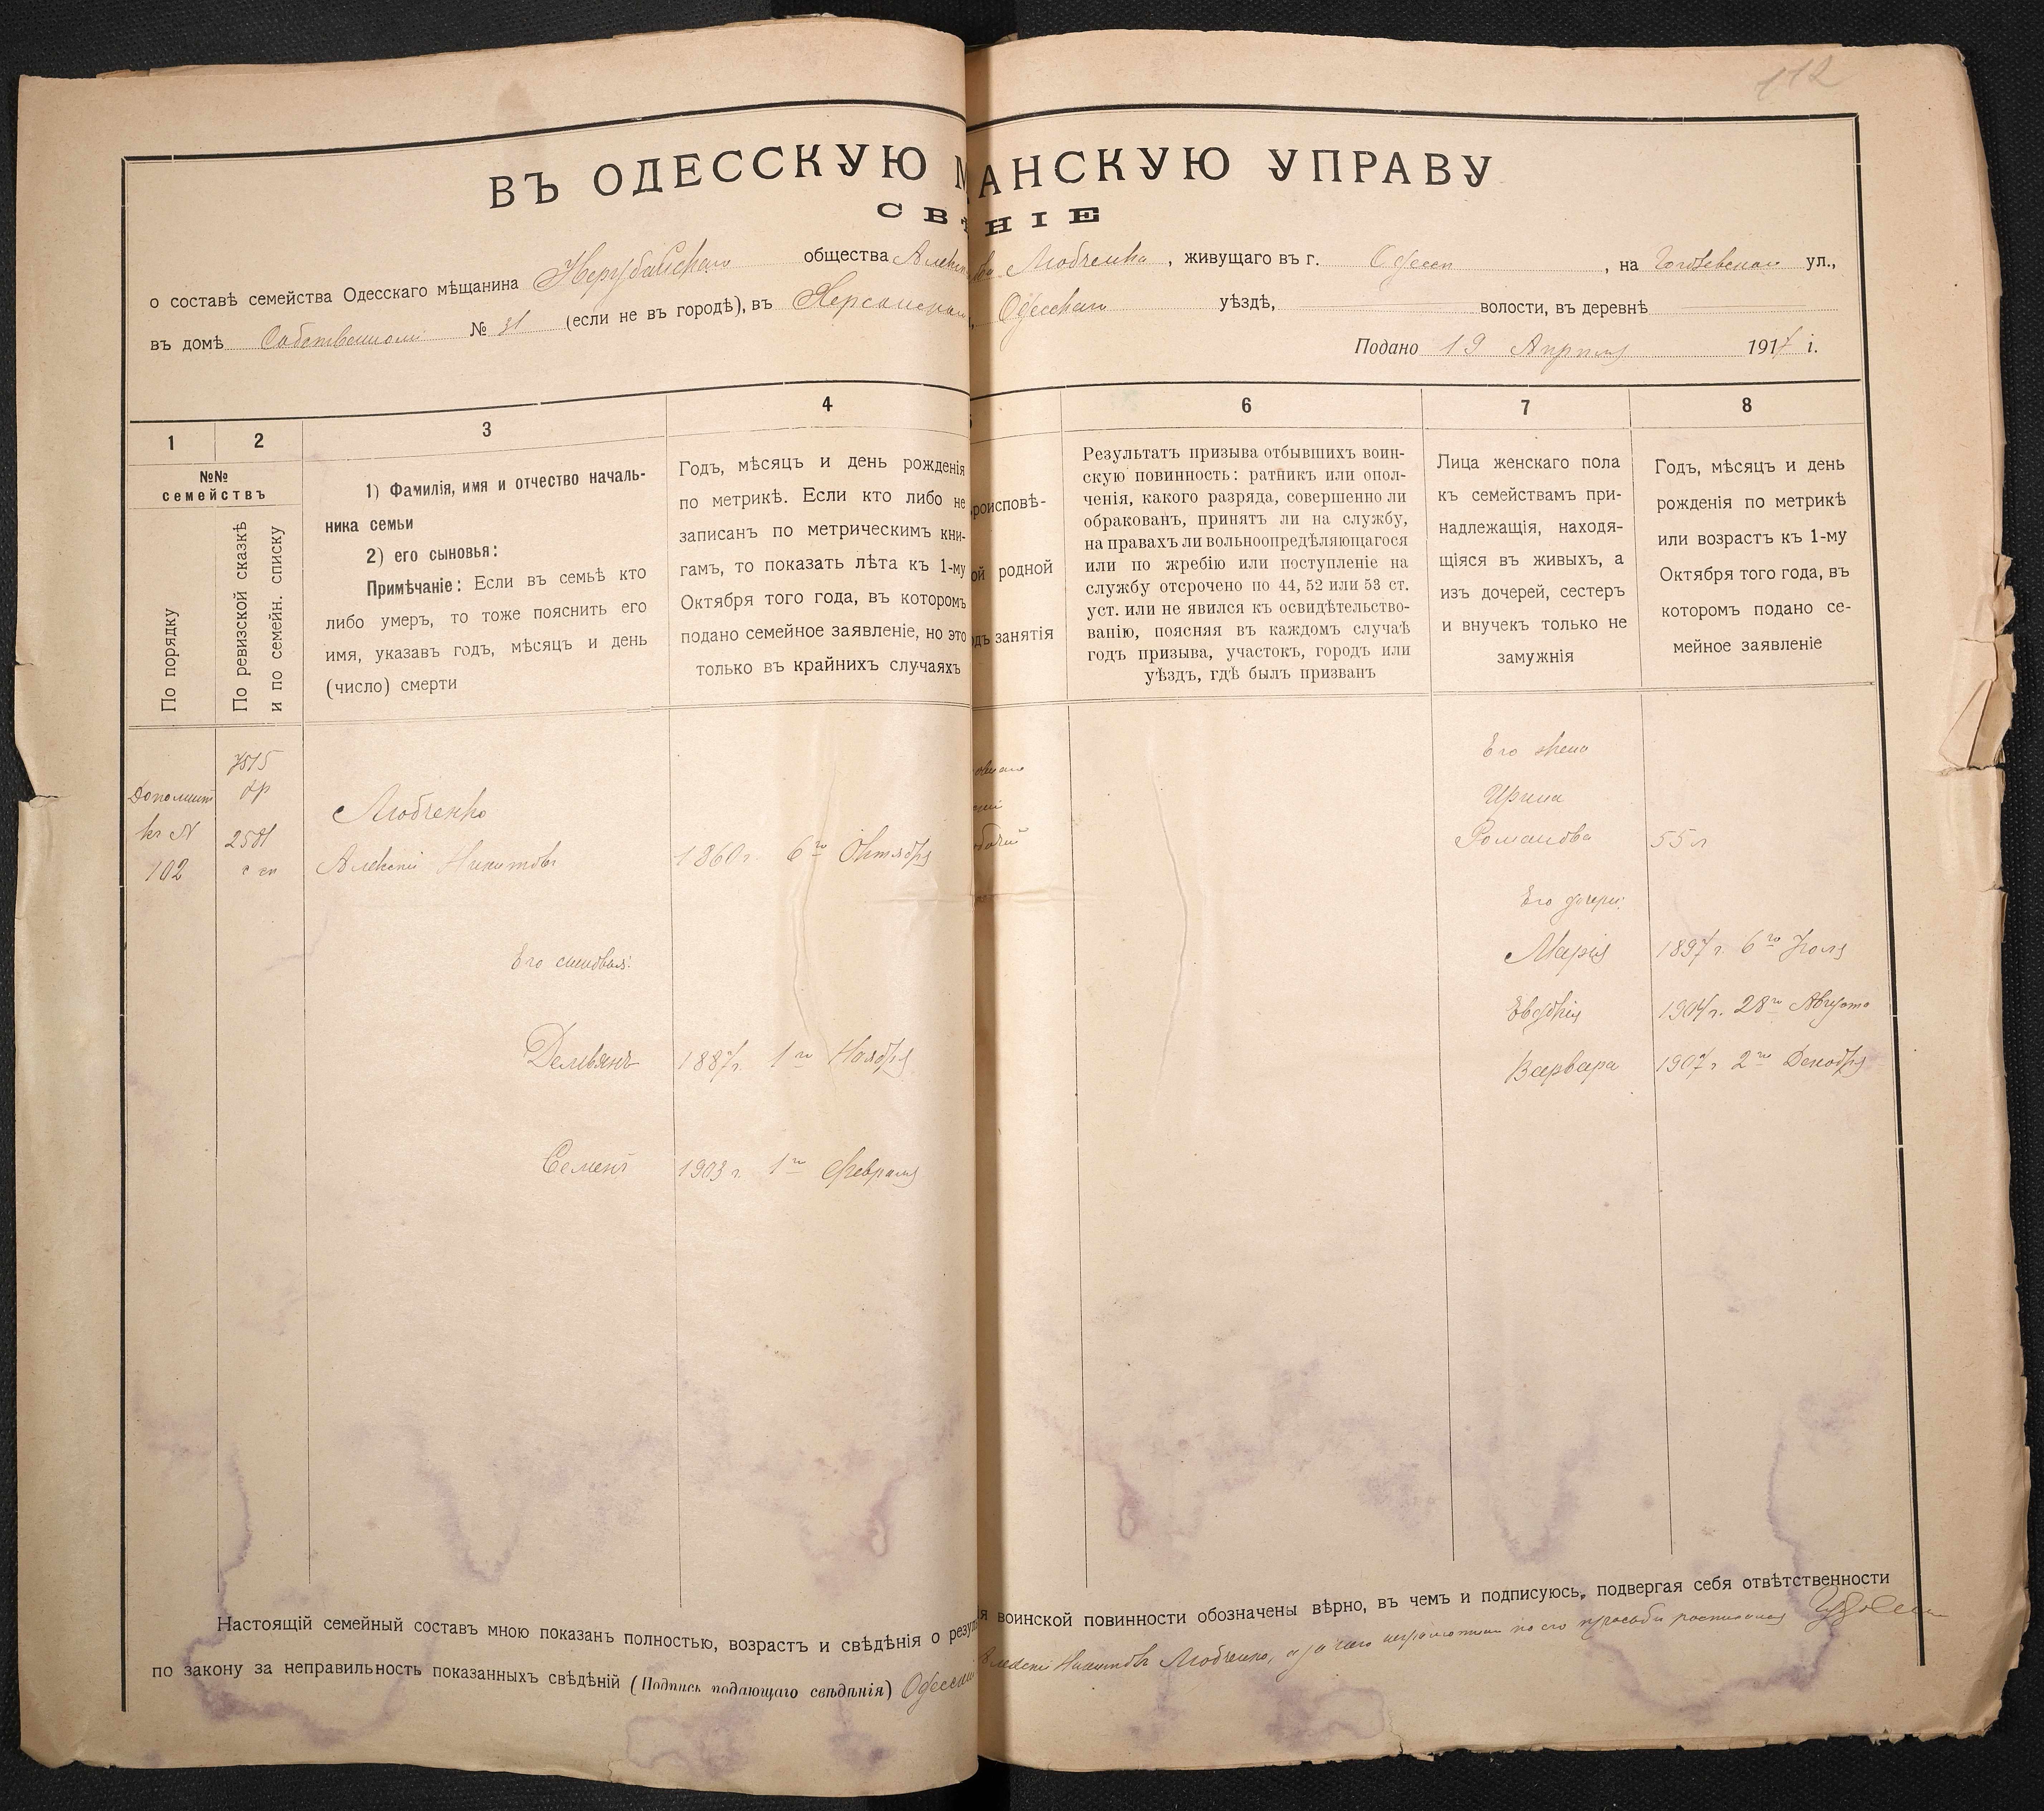 112
ВЪ ОДЕССКУЮ М АНСКУЮ УПРАВУ
СВѢ НІЕ
о составѣ семейства Одесскаго мѣщанина Нерубайскаго общества Алексѣ Любченко, живущаго въ г. Одессѣ, на ул.,
въ домѣ Собственномъ № 31 (если не въ городѣ), въ Херсонской, Одесскаго уѣздѣ, волости, въ деревнѣ
Подано 19 Апрѣля 1917 г.
1 2 3 4 5 6 7 8
№№
семействъ
По порядку
По ревизской сказкѣ
и по семейн. списку
1) Фамилія, имя и отчество началь-
ника семьи
2) его сыновья:
Примѣчаніе: Если въ семьѣ кто
либо умеръ, то тоже пояснить его
имя, указавъ годъ, мѣсяцъ и день
(число) смерти
Годъ, мѣсяцъ и день рожденія
по метрикѣ. Если кто либо не
записанъ по метрическимъ кни-
гамъ, то показать лѣта къ 1-му
Октября того года, въ которомъ
подано семейное заявленіе, но это
только въ крайнихъ случаяхъ
роисповѣ-
ой родной
дъ занятія
Результатъ призыва отбывшихъ воин-
скую повинность: ратникъ или опол-
ченія, какого разряда, совершенно ли
обракованъ, принятъ ли на службу,
на правахъ ли вольноопредѣляющагося
или по жребію или поступленіе на
службу отсрочено по 44, 52 или 53 ст.
уст. или не явился къ освидѣтельство-
ванію, поясняя въ каждомъ случаѣ
годъ призыва, участокъ, городъ или
уѣздъ, гдѣ былъ призванъ
Лица женскаго пола
къ семействамъ при-
надлежащія, находя-
щіяся въ живыхъ, а
изъ дочерей, сестеръ
и внучекъ только не
замужнія
Годъ, мѣсяцъ и день
рожденія по метрикѣ
или возрастъ къ 1-му
Октября того года, въ
которомъ подано се-
мейное заявленіе
Дополнит
къ №
102
7515
др
2581
с сп
Любченко
Алексѣй Никитовъ 1860 г. 6го Октября
Его сыновья:
Демьянъ 1887 г. 1го Ноября
Семенъ 1903 г. 1го Февраля
Его жена
Ирина
Романова 55 л
Его дочери:
Марія 1897 г. 6го Іюля
Евдокія 1904 г. 28го Августа
Варвара 1907 г. 2го Декабря
Настоящій семейный составъ мною показанъ полностью, возрастъ и свѣдѣнія о резул я воинской повинности обозначены вѣрно, въ чемъ и подписуюсь, подвергая себя отвѣтственности
по закону за неправильность показанныхъ свѣдѣній (Подпись подающаго свѣдѣнія) Одесскій Алексѣй Никитовъ Любченко, а за него неграмотнаго по его просьбѣ росписался